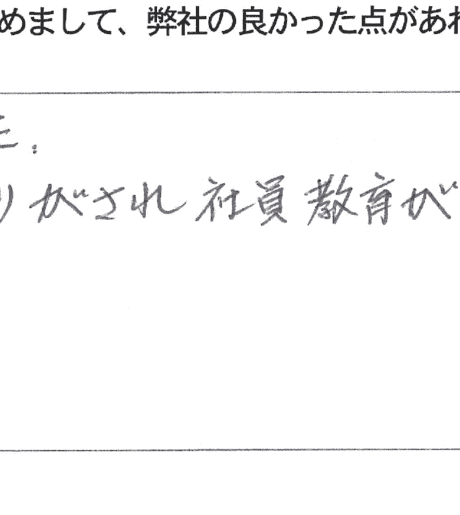 めまして、弊社の良かった点があれ
た。
りがされ社員教育が